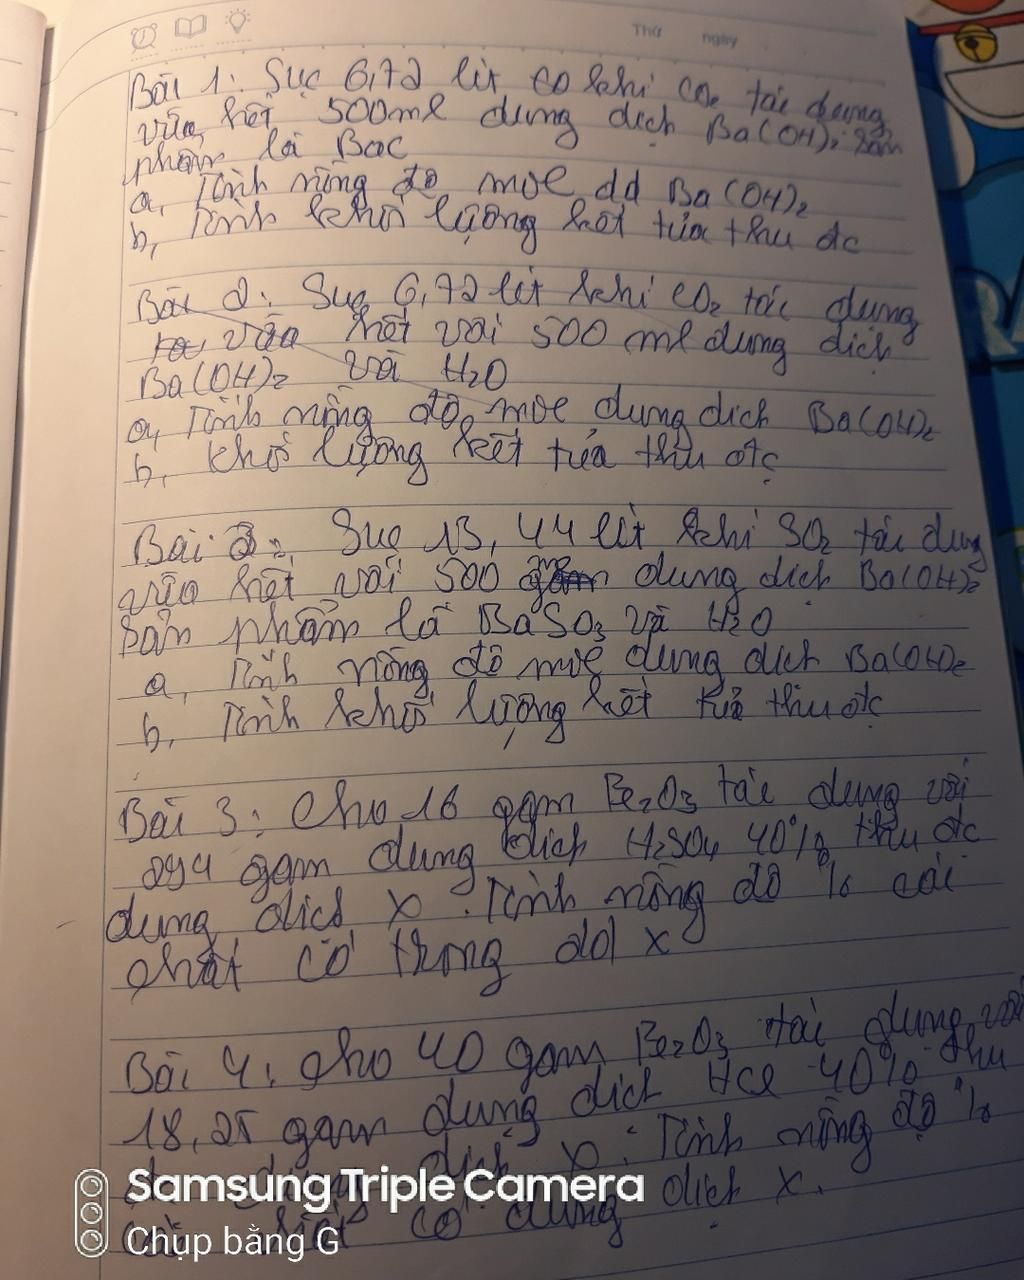 Thứ ngày
Bài 1: Sục 6,72 lít CO khí CO₂ tác dụng
vừa hết 500ml dung dịch Ba(OH)₂ sản
phẩm là BaC
a, Tính nồng độ mol dd Ba(OH)₂
b, Tính khối lượng kết tủa thu đc
Bài 2: Sục 6,72 lít khí CO₂ tác dụng
vừa hết với 500 ml dung dịch
Ba(OH)₂ và H₂O
a, Tính nồng độ mol dung dịch Ba(OH)₂
b, khối lượng kết tủa thu đtc
Bài 2: Sục 13,44 lít khí SO₂ tác dụng
vừa hết với 500 dung dịch Ba(OH)₂
Sản phẩm là BaSO₃ và H₂O
a, Tính nồng độ mol dung dịch Ba(OH)₂
b, Tính khối lượng kết tủa thu đtc
Bài 3: Cho 16 gam Fe₂O₃ tác dụng với
294 gam dung dịch H₂SO₄ 40% thu đc
dung dịch X. Tính nồng độ % các
chất có trong dd X
Bài 4: Cho 40 gam Fe₂O₃ tác dụng với
18,25 gam dung dịch HCl 40% thu
dịch X. Tính nồng độ %
chất có dung dịch X.
Samsung Triple Camera
Chụp bằng G